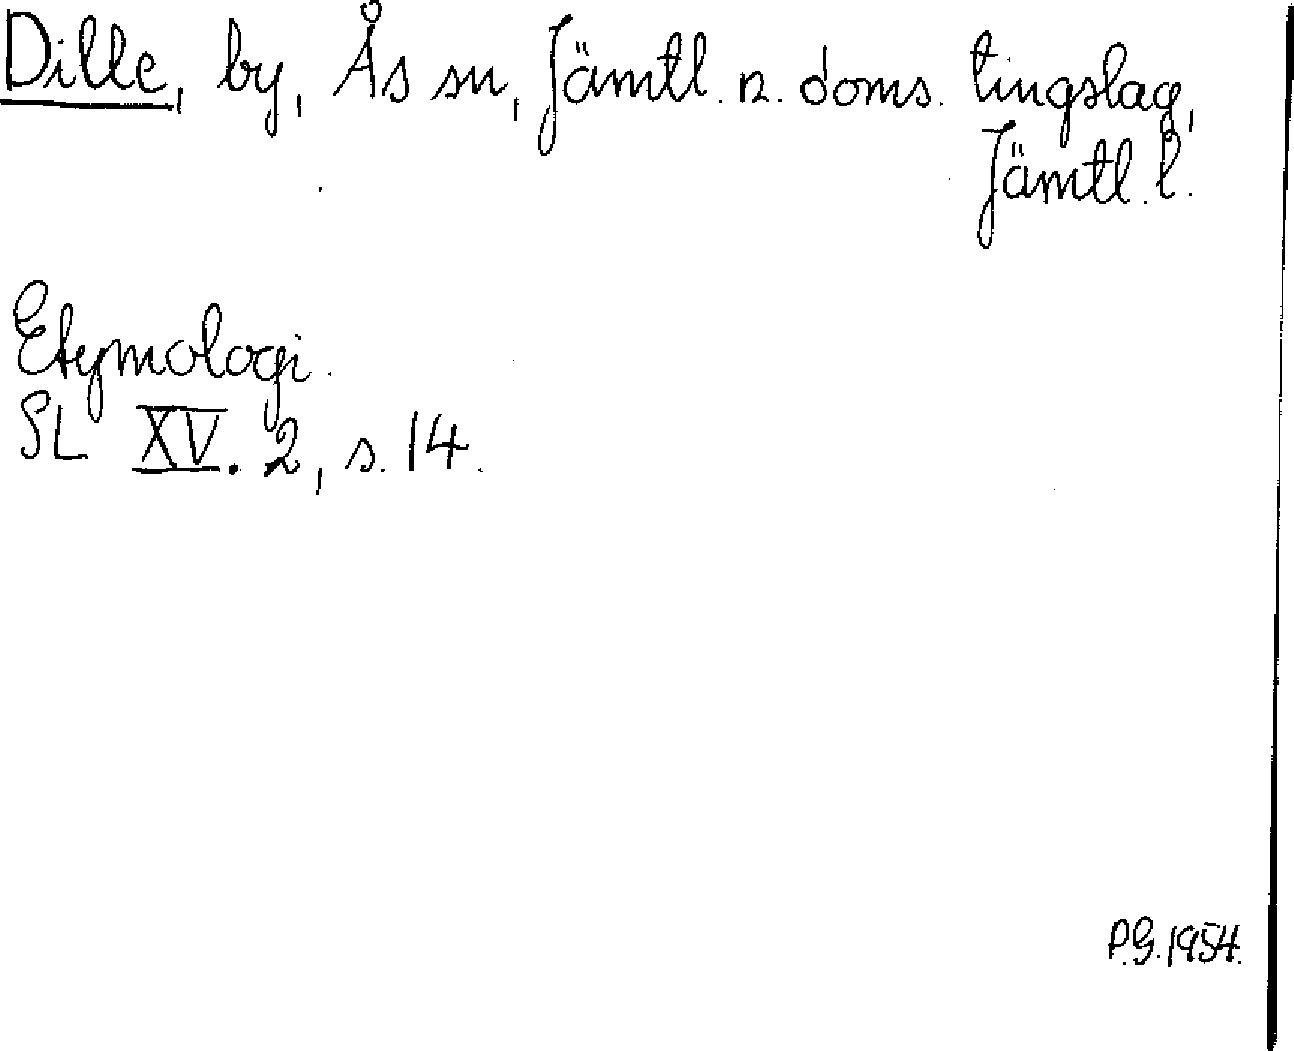 Dille, by, Ås sn, Jämtl. n. doms. tingslag,
Jämtl. l.
Etymologi.
SL XV. 2, s. 14.
P.G. 1954.